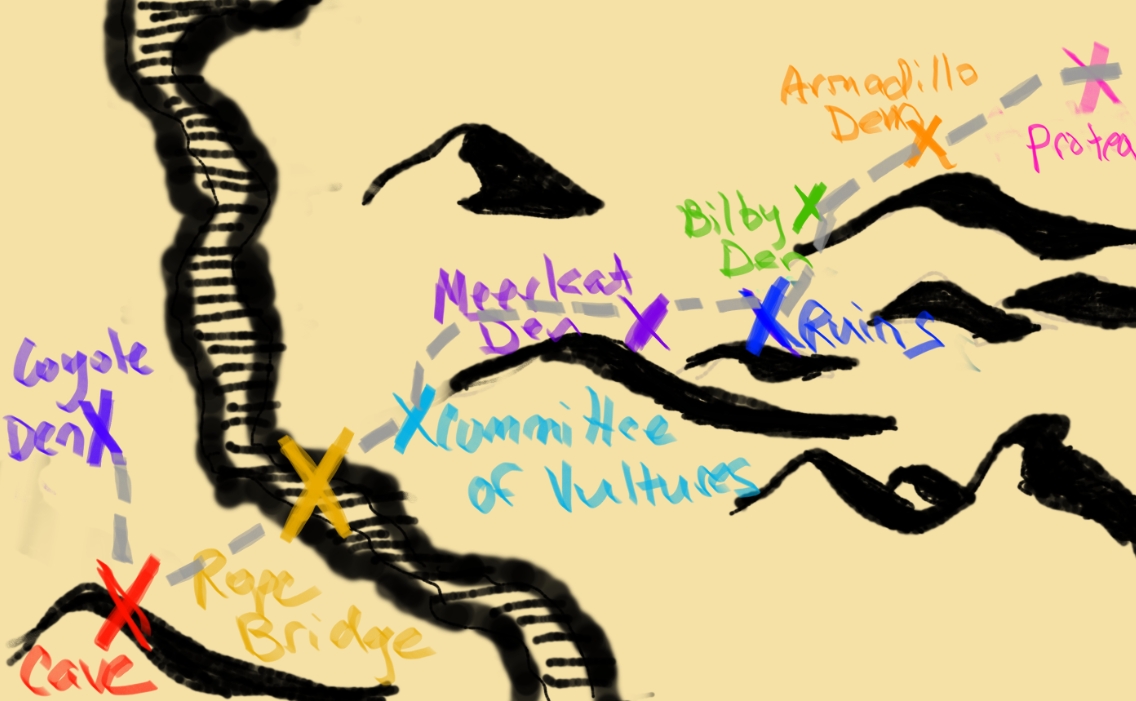 Armadillo
Den
Protea
Bilby
Den
Meerkat
Den
Ruins
Coyote
Den
Committee
of Vultures
Rope
Bridge
Cave